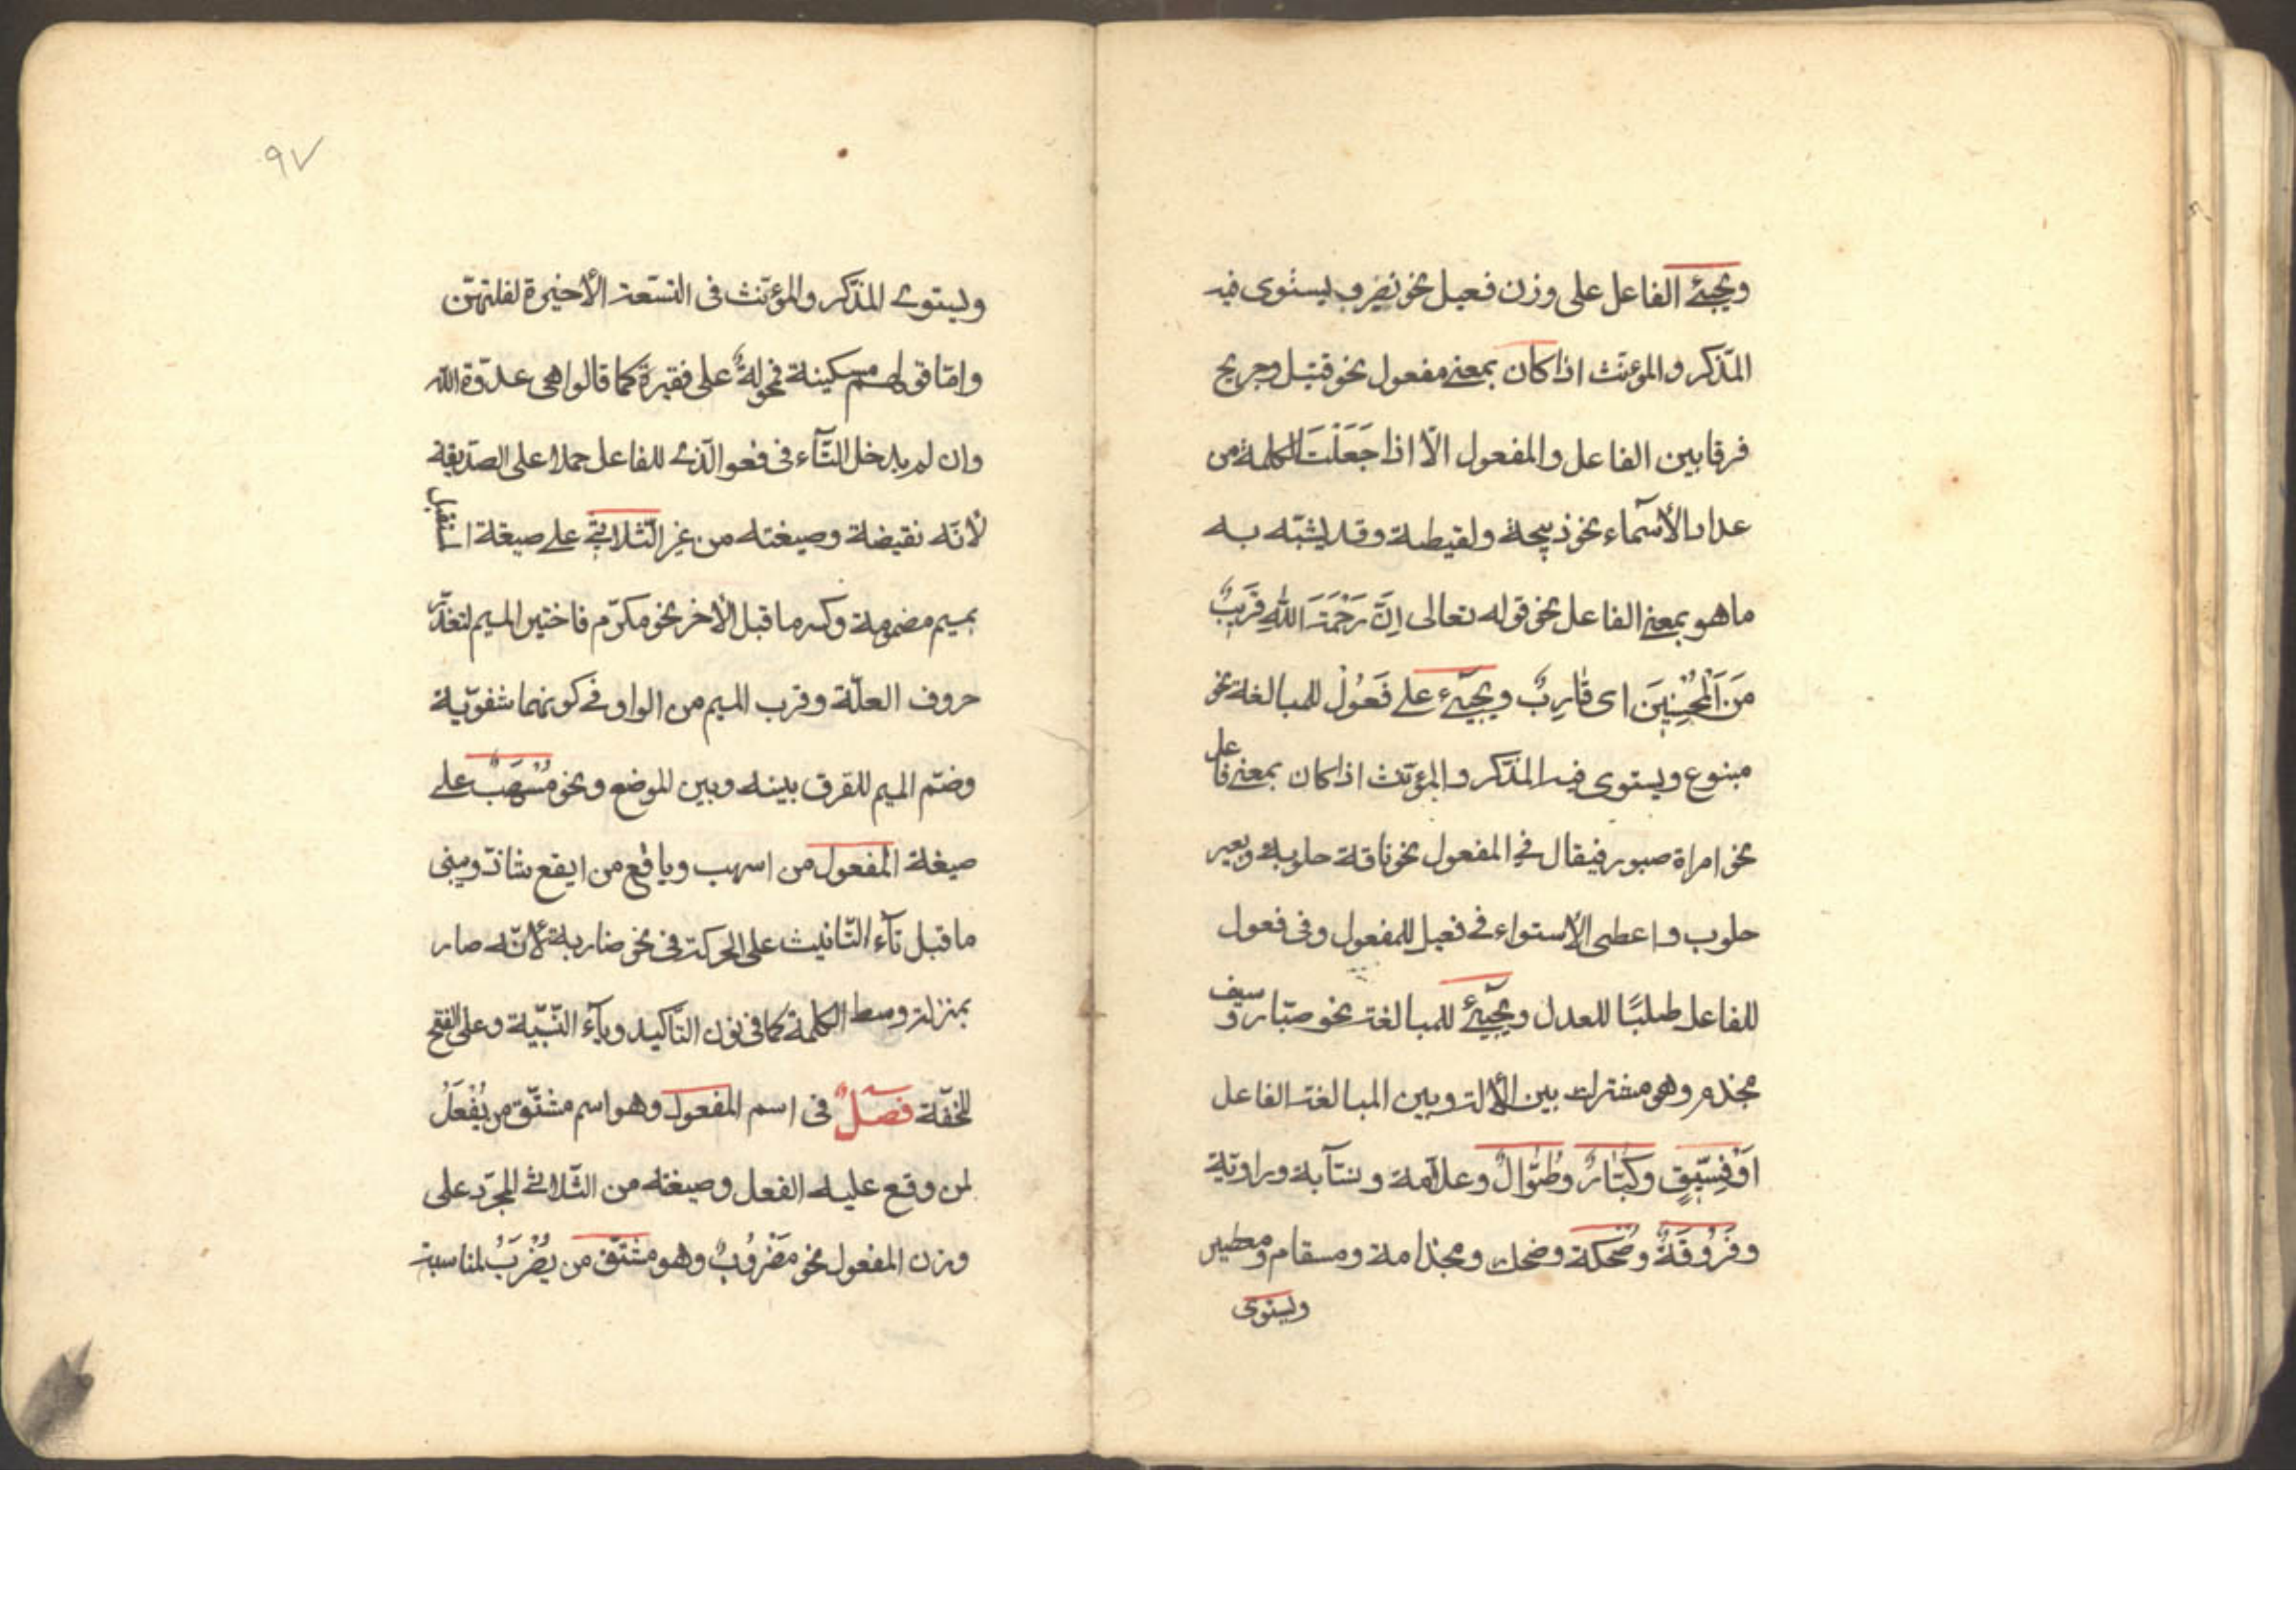 ويجيئ الفاعل على وزن فعيل نحو نصر ويستوى فيه
المذّكر والمؤنّث اذا كان بمعنى مفعول نحو قتيل وجريح
فرقا بين الفاعل والمفعول الّا اذا جَعَلْتَ الكلمة من
عداد الأسمآء نحو ذبيحة ولقيطة وقد يشبّه به
ما هو بمعنى الفاعل نحو قوله تعالى اِنَّ رَحْمَتَ اللّٰهِ قَرِيبٌ
مِنَ اَلْمُحْسِنِينَ اى قٰارِبٌ ويجيّئ على فَعُوْلٌ للمبالغة نحو
منوع ويستوى فيه المذّكر والمؤنّث اذا كان بمعنى فاعل
نحو امراة صبور فيقال فى المفعول نحو ناقة حلوبة وبعير
حلوب واعطى الأستواء فى فعيل للمفعول وفى فعول
للفاعل طلبًا للعدل ويجيّئ للمبالغة نحو صبّار وسيف
مجذم وهو مشترك بين الألة وبين المبالغة الفاعل
اَوْ فِسّيقٍ وكُبّٰارٌ وطُوّٰالٌ وعلاّمة ونسّآبة وراوية
وفَرُوقَةٌ وضُحكة وضحك ومجذامة ومسقام ومعطير
ويستوى
٩٧
ويستوى المذّكر والمؤنّث فى التسعة الأخيرة لقلتهنّ
وامّا قولهم مسكينة فمحمولةٌ على فقيرة كما قالوا هى عدوّة اللّه
وان لم يدخل التّآء فى فعول الّذى للفاعل حملا على الصدّيقة
لأنّه نقيضة وصيغته من غير الثّلاثىّ على صيغة المستقبل
بميم مضمومة وكسر ما قبل الأخر نحو مكرّم فاختير الميم لتعذّر
حروف العلّة وقرب الميم من الواو فى كونهما شفويّة
وضمّ الميم للفرق بينه وبين الموضع ونحو مُسْهَبٌ على
صيغة المفعول من اسهب ويافع من ايفع شاذّ ويبنى
ما قبل تآء التّانيث على الحركة فى نحو ضاربة لأنّه صار
بمنزلة وسط الكلمة كما فى نون التّاكيد ويآء النّسبيّة وعلى الفتح
للخفّة فصلٌ فى اسم المفعول وهو اسم مشتّق من يُفْعَلُ
لمن وقع عليه الفعل وصيغته من الثّلاثى المجرّد على
وزن المفعول نحو مَضْرُوبٌ وهو مشتّق من يُضْرَبُ لمناسبة